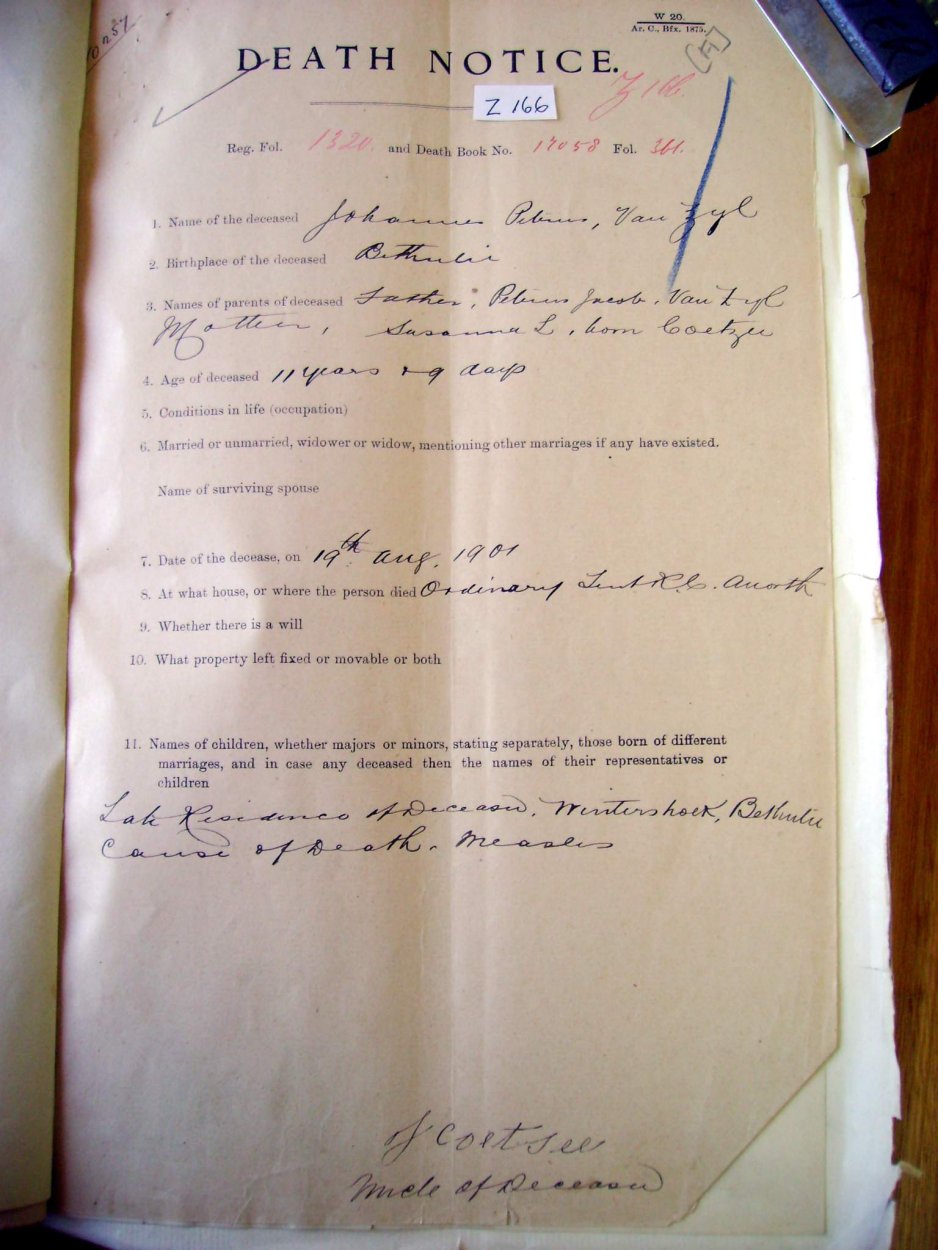 W 20.
Ar. C., Bfx. 1875.
DEATH NOTICE.
Z 166.
Z 166
Reg. Fol. 1320. and Death Book No. 17058 Fol. 361.
1. Name of the deceased Johannes Petrus, Van Zyl
2. Birthplace of the deceased Bethulie
3. Names of parents of deceased Father, Petrus Jacob. Van Zyl
Mother, Susanna L, born Coetzee
4. Age of deceased 11 years & 9 days
5. Conditions in life (occupation)
6. Married or unmarried, widower or widow, mentioning other marriages if any have existed.
Name of surviving spouse
7. Date of the decease, on 19th Aug. 1901
8. At what house, or where the person died Ordinary Tent R.C. A north
9. Whether there is a will
10. What property left fixed or movable or both
11. Names of children, whether majors or minors, stating separately, those born of different
marriages, and in case any deceased then the names of their representatives or
children
Late Residence of Deceased, Wintershoek, Bethulie
Cause of Death. Measles
Coetsee
Uncle of Deceased